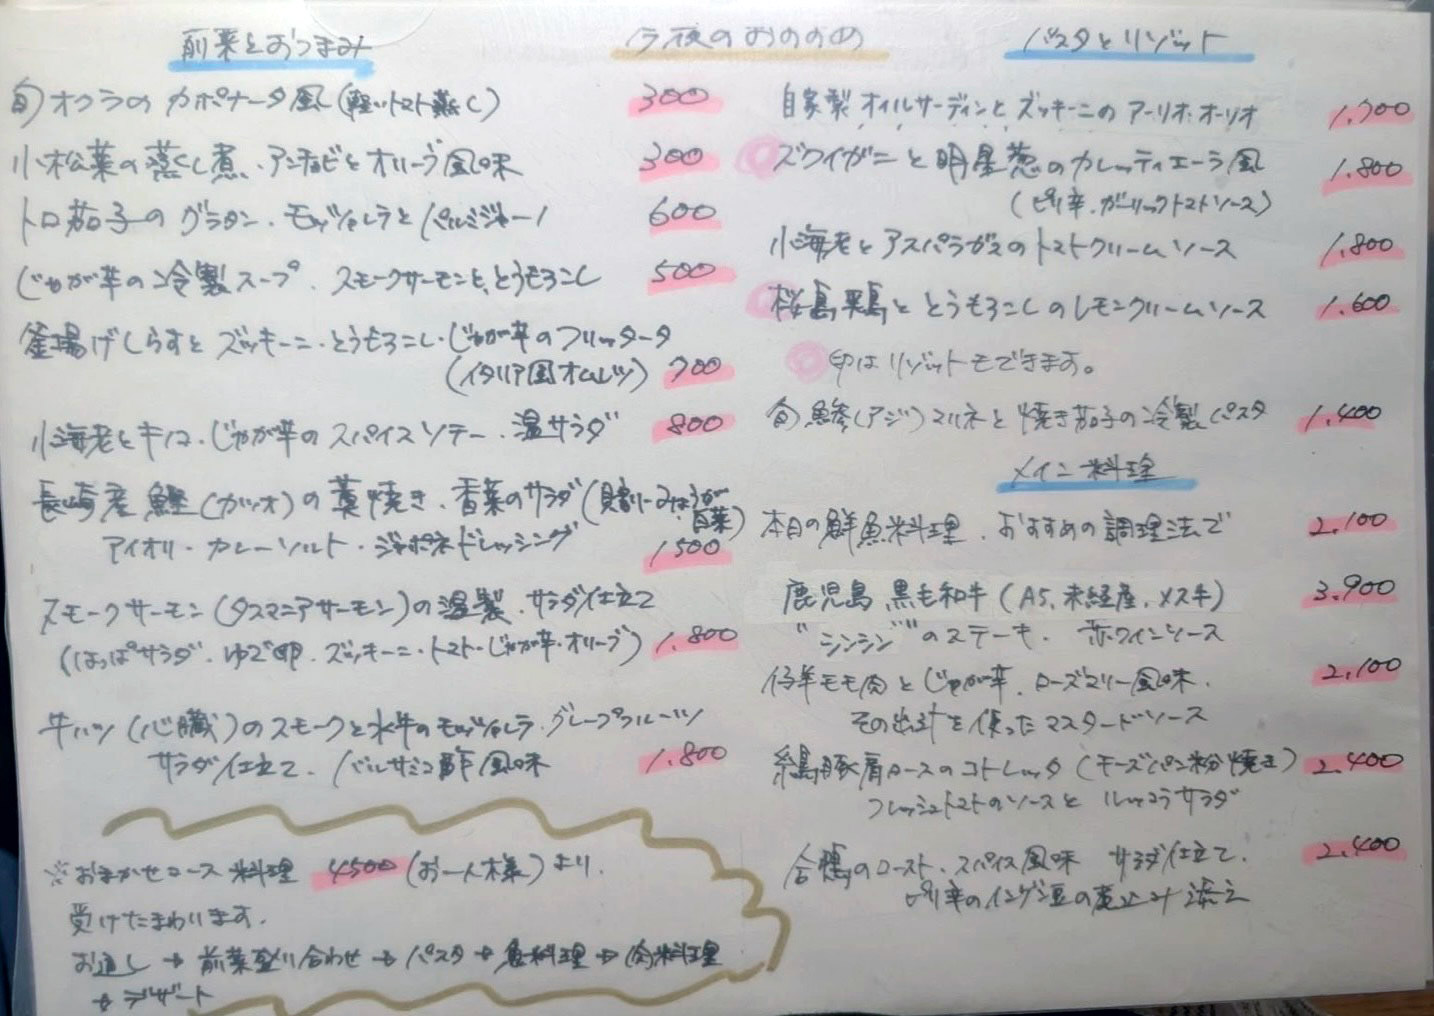 今夜のおすすめ
前菜とおつまみ
旬オクラのカポナータ風(軽いトマト蒸し) 300
小松菜の蒸し煮・アンチョビとオリーブ風味 300
トロ茄子のグラタン・モッツァレラとパルミジャーノ 600
じゃが芋の冷製スープ、スモークサーモンと、とうもろこし 500
釜揚げしらすとズッキーニ・とうもろこし・じゃが芋のフリッタータ
(イタリア風オムレツ) 700
小海老とキノコ・じゃが芋のスパイスソテー・温サラダ 800
長崎産鰹(カツオ)の藁焼き・香菜のサラダ(貝割れ・みょうが
白菜)
アイオリ・カレーソルト・ジャポネドレッシング 1500
スモークサーモン(タスマニアサーモン)の温製、サラダ仕立て
(はっぱサラダ・ゆで卵・ズッキーニ・トマト・じゃが芋・オリーブ) 1.800
牛ハツ(心臓)のスモークと水牛のモッツァレラ・グレープフルーツ
サラダ仕立て、バルサミコ酢風味 1.800
※おまかせコース料理 4500(お一人様)より、
受けたまわります。
お通し→前菜盛り合わせ→パスタ→魚料理→肉料理
→デザート
パスタとリゾット
自家製オイルサーディンとズッキーニのアーリオ・オーリオ 1.700
ズワイガニと明星葱のカレッティエーラ風 1.800
(ピリ辛・ガーリックトマトソース)
小海老とアスパラガスのトマトクリームソース 1.800
桜島鶏ととうもろこしのレモンクリームソース 1.600
印はリゾットもできます。
旬鯵(アジ)マリネと焼き茄子の冷製パスタ 1.400
メイン料理
本日の鮮魚料理、おすすめの調理法で 2.100
鹿児島、黒毛和牛(A5、未経産、メス牛) 3.900
"シンシン"のステーキ、赤ワインソース
仔羊モモ肉とじゃが芋、ローズマリー風味、 2.100
その出汁を使ったマスタードソース
絹豚肩ロースのコトレッタ(チーズパン粉焼き) 2.400
フレッシュトマトのソースとルッコラサラダ
合鴨のロースト、スパイス風味 サラダ仕立て、 2.400
ピリ辛のインゲン豆の煮込み添え